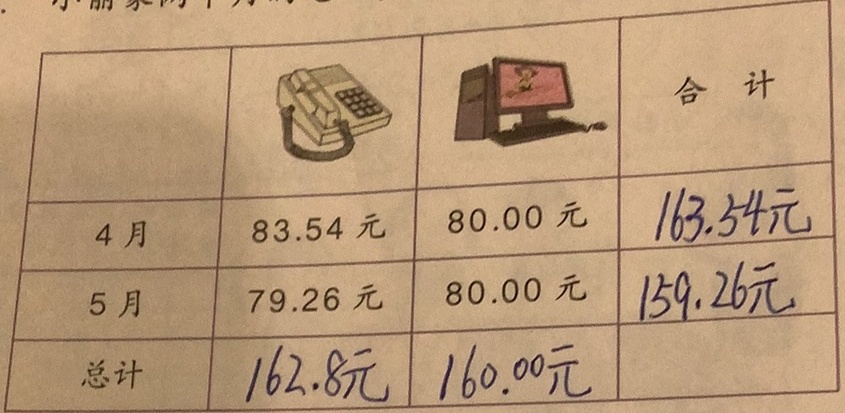 合 计
4月 83.54元 80.00元 163.54元
5月 79.26元 80.00元 159.26元
总计 162.8元 160.00元